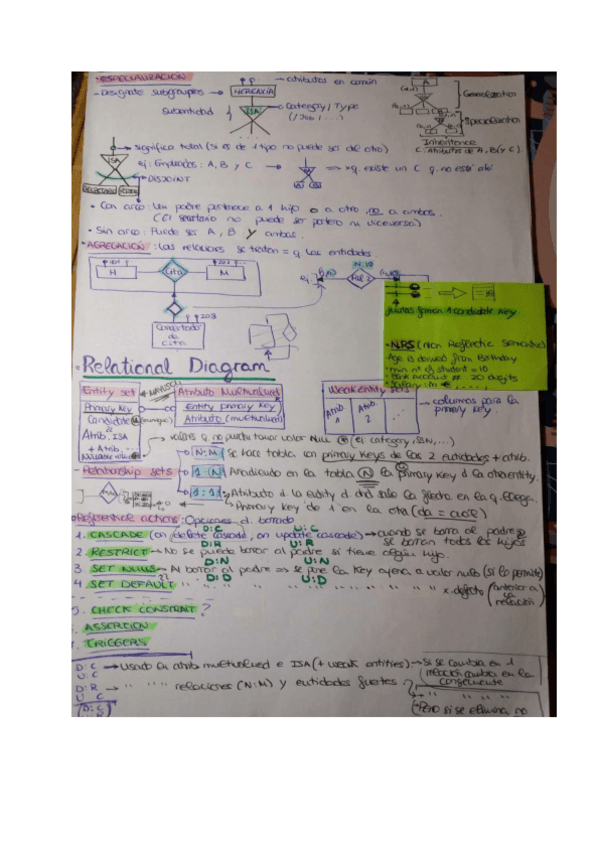 • ESPECIALIZACIÓN
→ atributos en común
- Designate subgroupies → JERARQUÍA
Subentidad
ISA
→ Category / Type
( / Job / ...)
A
Generalization
Specialization
Inheritance
C: Atributos de A, B y C.
→ significa total (si es de 1 tipo no puede ser del otro)
ISA
ej: Empleados: A, B y C →
→ xq. existe un C q. no está ahí
→ DISJOINT
• Con arco: Un padre pertenece a 1 hijo o a otro, no a ambos.
(El secretario no puede ser portero ni viceversa)
• Sin arco: Puede ser A, B y ambas.
• AGREGACIÓN: Las relaciones se tratan = q las entidades
H
Cita
M
N:10
ej:
Rel 2
203
Conjuntado de cita
juntas forman 1 candidate key
• NRS (Non Reflective Semantics)
Age is derived from Birthday
• min nº of student = 10
• Bank Account #: 20 digits
• Relational Diagram
Entity set
Primary Key
Candidate
Atrib. ISA
+ Atrib.
Atributo Multivalued
Entity primary key
Atributo (multivalued)
Weak entity sets
Atrib 1
Atrib 2
...
→ columnas para la primary key.
→ valores q no pueden tomar valor Null (ej category, SSN, ...)
- Relationship sets
N:M Se hace tabla con primary keys de las 2 entidades + atrib.
1:N Añadiendo en la tabla N la primary key d la otra entity.
1:1 Atributo d la entity d dnd sale la flecha en la q llega.
Primary key de 1 en la otra (da = cual)
• Referential actions: Opciones d borrado
D:C U:C
1. CASCADE (on delete cascade, on update cascade) → cuando se borra al padre se borran todos los hijos
D:R U:R
2. RESTRICT → No se puede borrar al padre si tiene algún hijo.
D:N U:N
3. SET NULLS → Al borrar al padre => se pone la key ajena a valor nulo (si lo permite)
D:D U:D
4. SET DEFAULT " " " " " " " x defecto (anterior a la relación)
5. CHECK CONSTRAINT?
. ASSERCION
. TRIGGERS
D:C
U:C
→ Usado en atrib multivalued e ISA (+ weak entities) → Si se cambia en 1 relación cambia en la consecuente
D:R
U:C
→ " " " relaciones (N:M) y entidades fuertes → " " "
D:C
→ Pero si se elimina, no